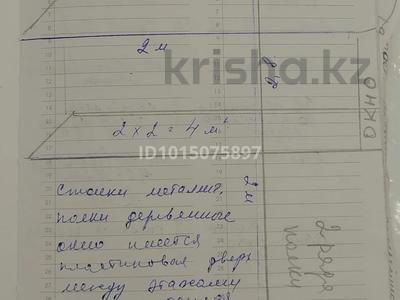 krisha.kz
2 м
2,8
2 х 2 = 4 м²
ОКНО
ID1015075897
2 м
Стойки металич.
полки деревянные
окно имеется
пластиковая дверь
между этажами
2 ряда
полки